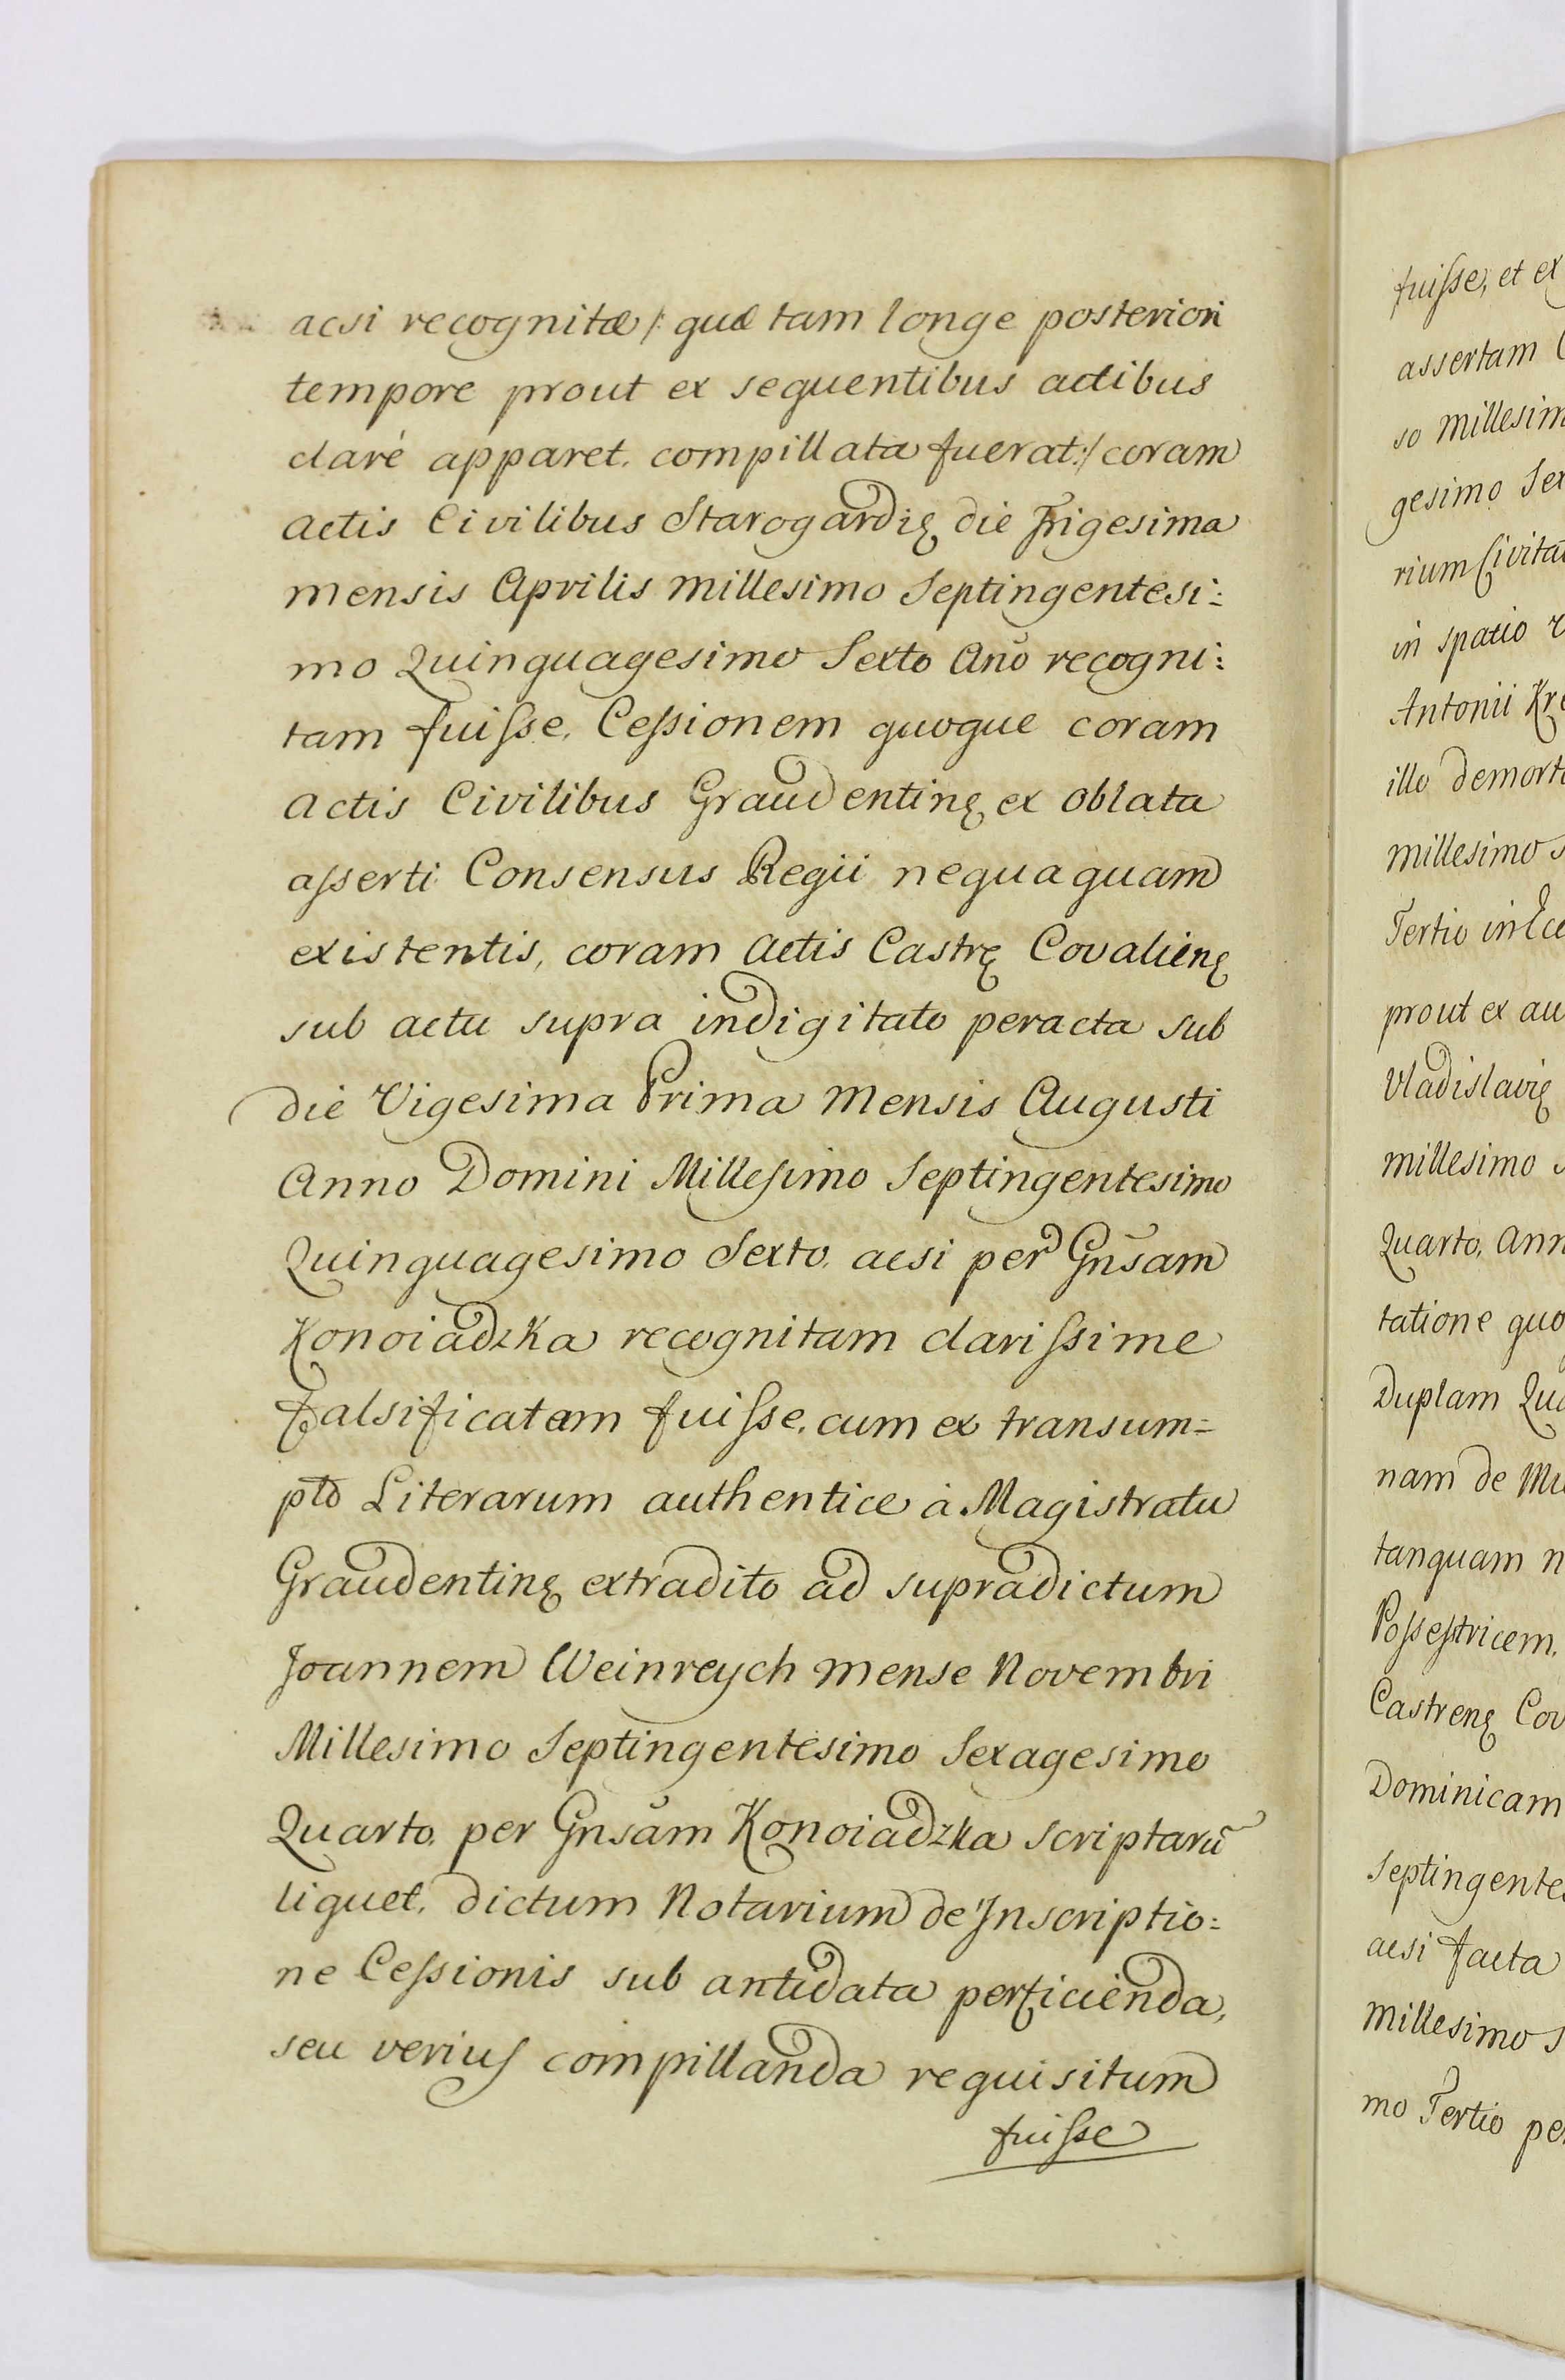 acsi recognitæ /: quæ tam longe posteriori
tempore prout ex sequentibus actibus
claré apparet. compillata fuerat :/ coram
Actis Civilibus Starogardię die Trigesima
mensis Aprilis Millesimo Septingentesi:
mo Quinquagesimo Sexto Ano̅ recogni:
tam fuiſse. Ceſsionem quoque coram
Actis Civilibus Graudentinę ex oblata
aſserti Consensus Regii nequaquam
existentis, coram Actis Castrę Covalienę
sub actu supra indigitato peracta sub
die Vigesima Prima Mensis Augusti
Anno Domini Milleſimo Septingentesimo
Quinquagesimo Sexto. acsi per Gnsa̅m
Konoiadzka recognitam clariſsime
Falsificatam fuiſse. cum ex transum=
pto Literarum authentice à Magistratu
Graudentinę extradito ad supradictum
Joannem Weinreych mense Novembri
Millesimo Septingentesimo Sexagesimo
Quarto. per Gnsa̅m Konoiadzka scriptaru̅
liquet. dictum Notarium de Inscriptio:
ne Ceſsionis sub antidata perficienda,
seu veriuſ compillanda requisitum
fuiſse
fuiſse, et ex
assertam
so Millesim
gesimo Sex
rium Civita
in spatio
Antonii Kre
illo demort
Millesimo
Tertio in Ecc
prout ex au
Vladislavię
millesimo
Quarto. Ann
tatione quo
Duplam Qua
nam de
tanquam n
Poſseſtricem.
Castrenę Cov
Dominicam
Septingentes
acsi facta
Millesimo S
mo Tertio per